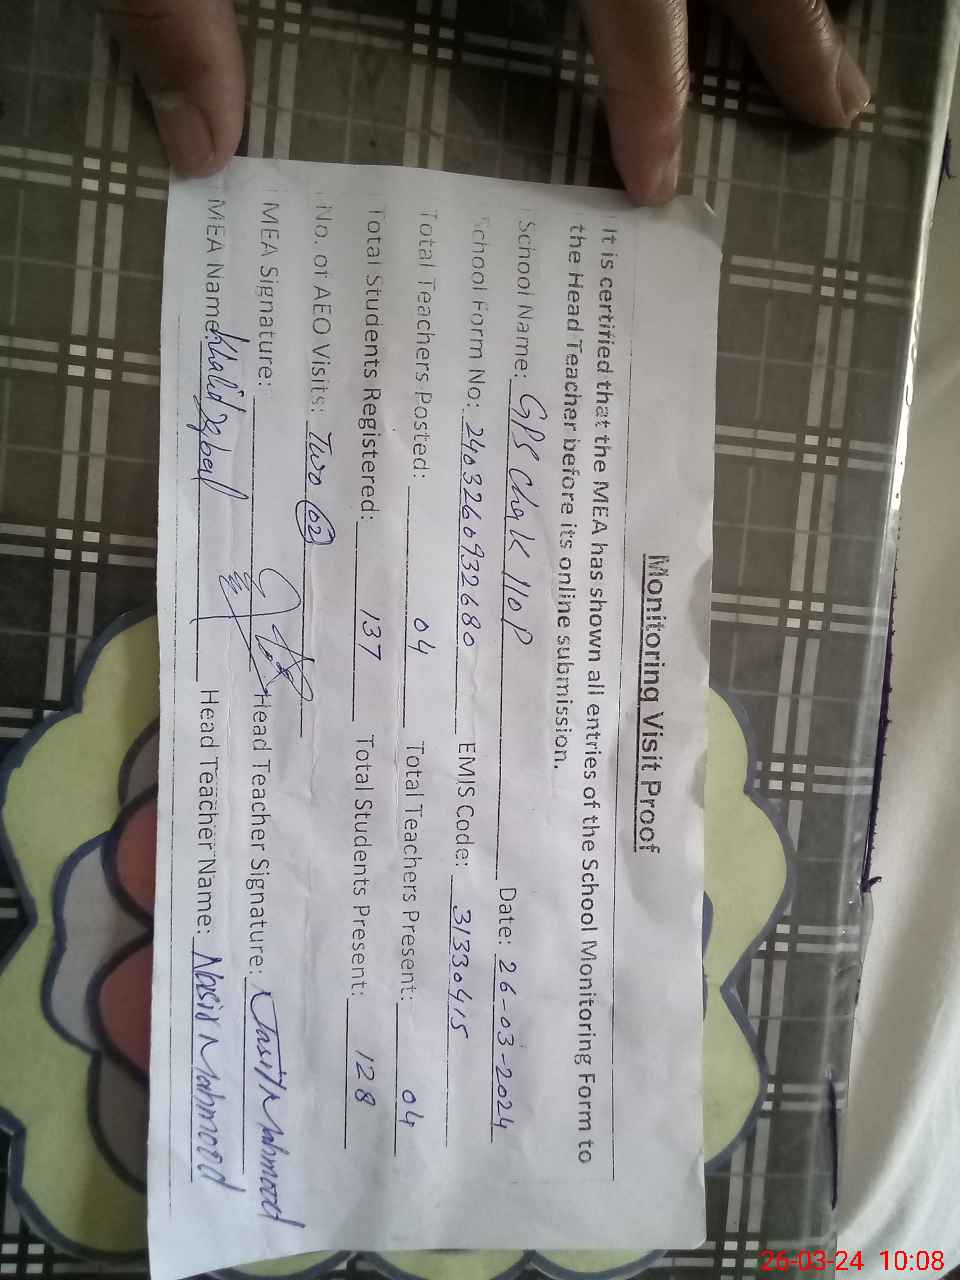 Monitoring Visit Proof
It is certified that the MEA has shown all entries of the School Monitoring Form to
the Head Teacher before its online submission.
School Name: GPS Chak 110P Date: 26-03-2024
School Form No: 2403260932680 EMIS Code: 31330415
Total Teachers Posted: 04 Total Teachers Present: 04
Total Students Registered: 137 Total Students Present: 128
No. of AEO Visits: Two (02)
MEA Signature: Head Teacher Signature: Nasir Mahmood
MEA Name: Khalid Iqbal Head Teacher Name: Nasir Mahmood
26-03-24 10:08